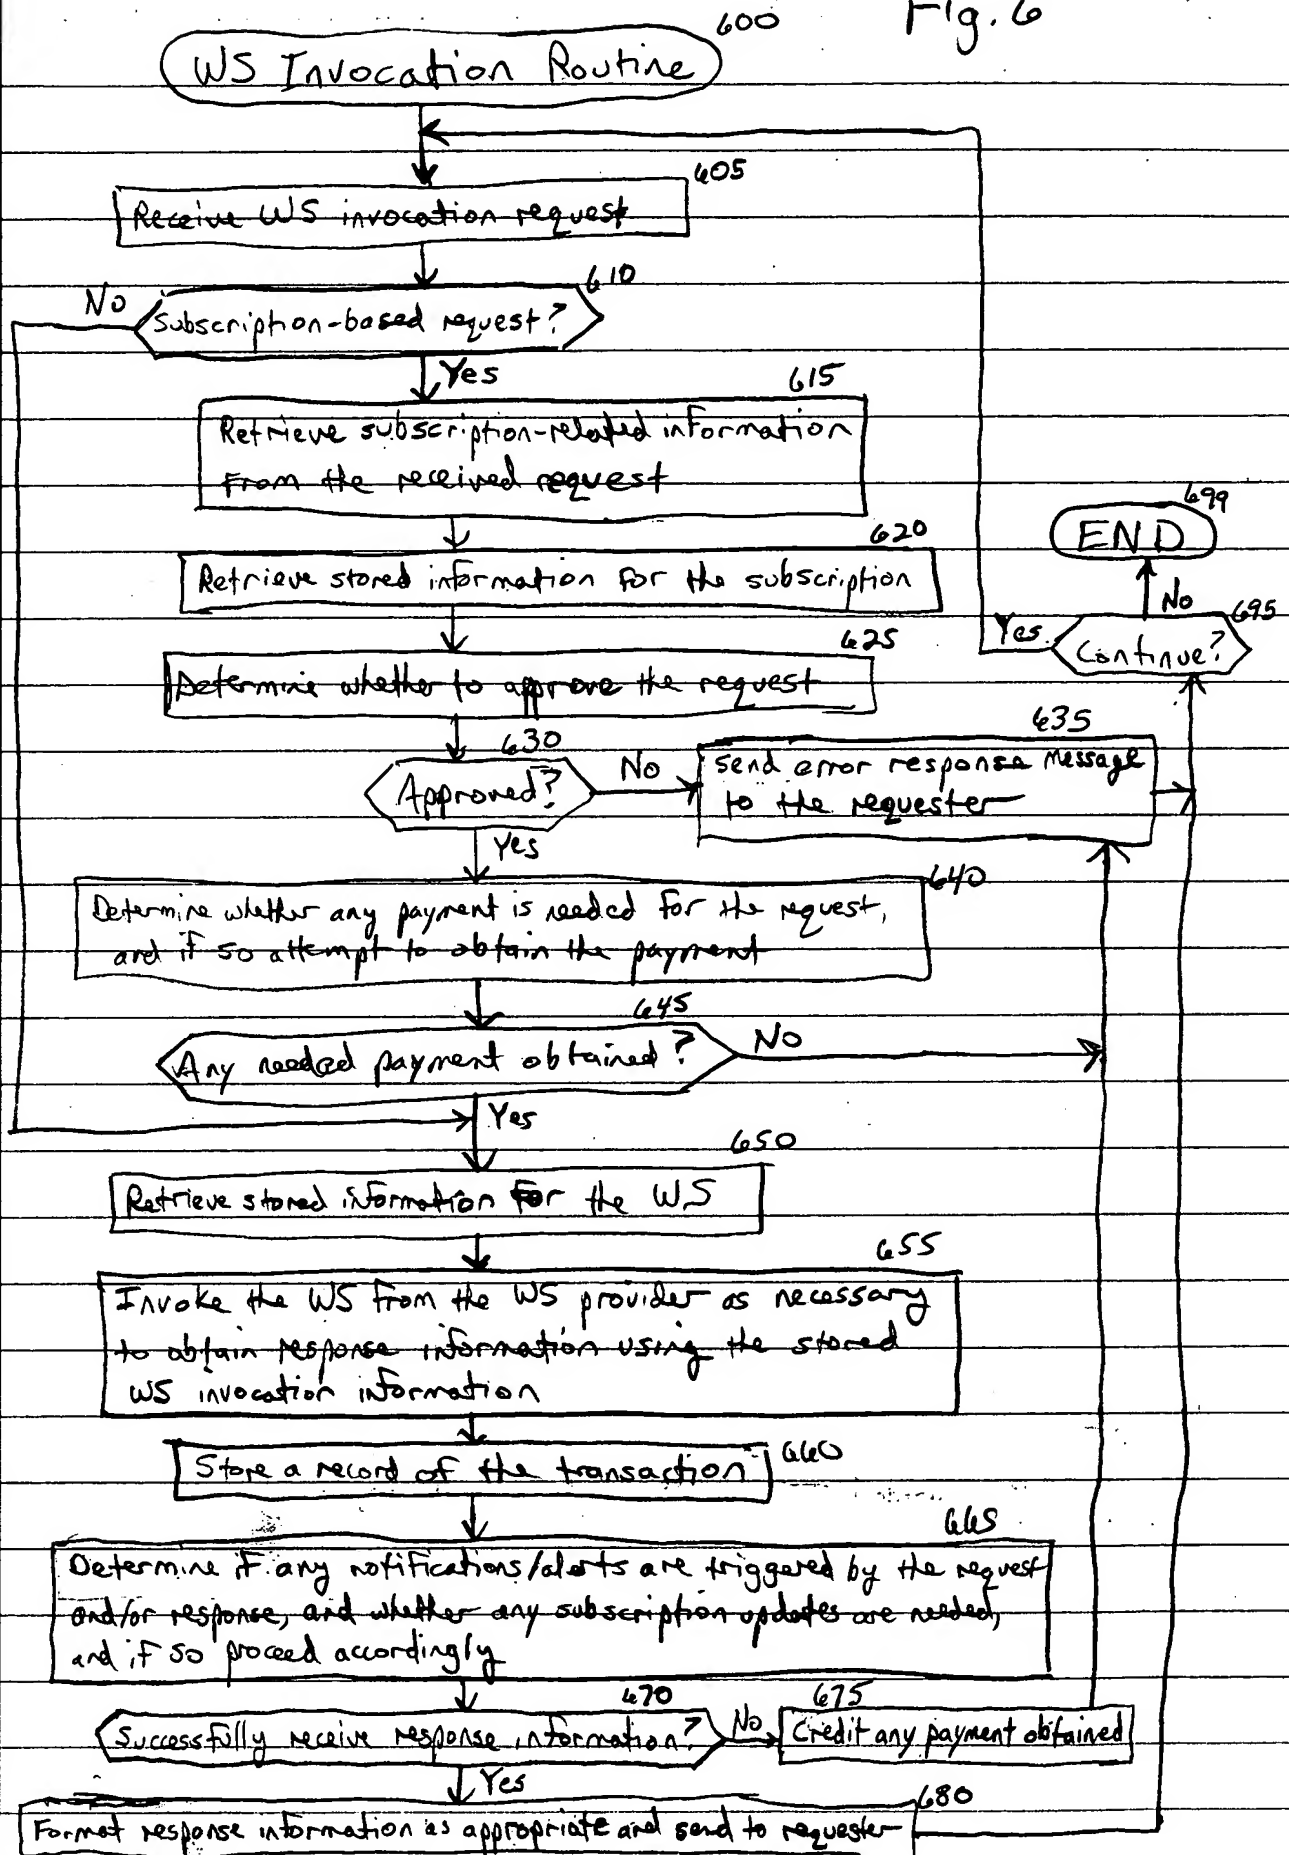 Fig. 6
600
WS Invocation Routine
605
Receive WS invocation request
610
No
Subscription-based request?
Yes
615
Retrieve subscription-related information
from the received request
699
END
620
Retrieve stored information for the subscription
No
695
Yes
Continue?
625
Determine whether to approve the request
630
635
Approved?
No
Send error response message
to the requester
Yes
640
Determine whether any payment is needed for the request,
and if so attempt to obtain the payment
645
Any needed payment obtained?
No
Yes
650
Retrieve stored information for the WS
655
Invoke the WS from the WS provider as necessary
to obtain response information using the stored
WS invocation information
660
Store a record of the transaction
665
Determine if any notifications/alerts are triggered by the request
and/or response, and whether any subscription updates are needed,
and if so proceed accordingly
670
675
Successfully receive response information?
No
Credit any payment obtained
Yes
680
Format response information as appropriate and send to requester